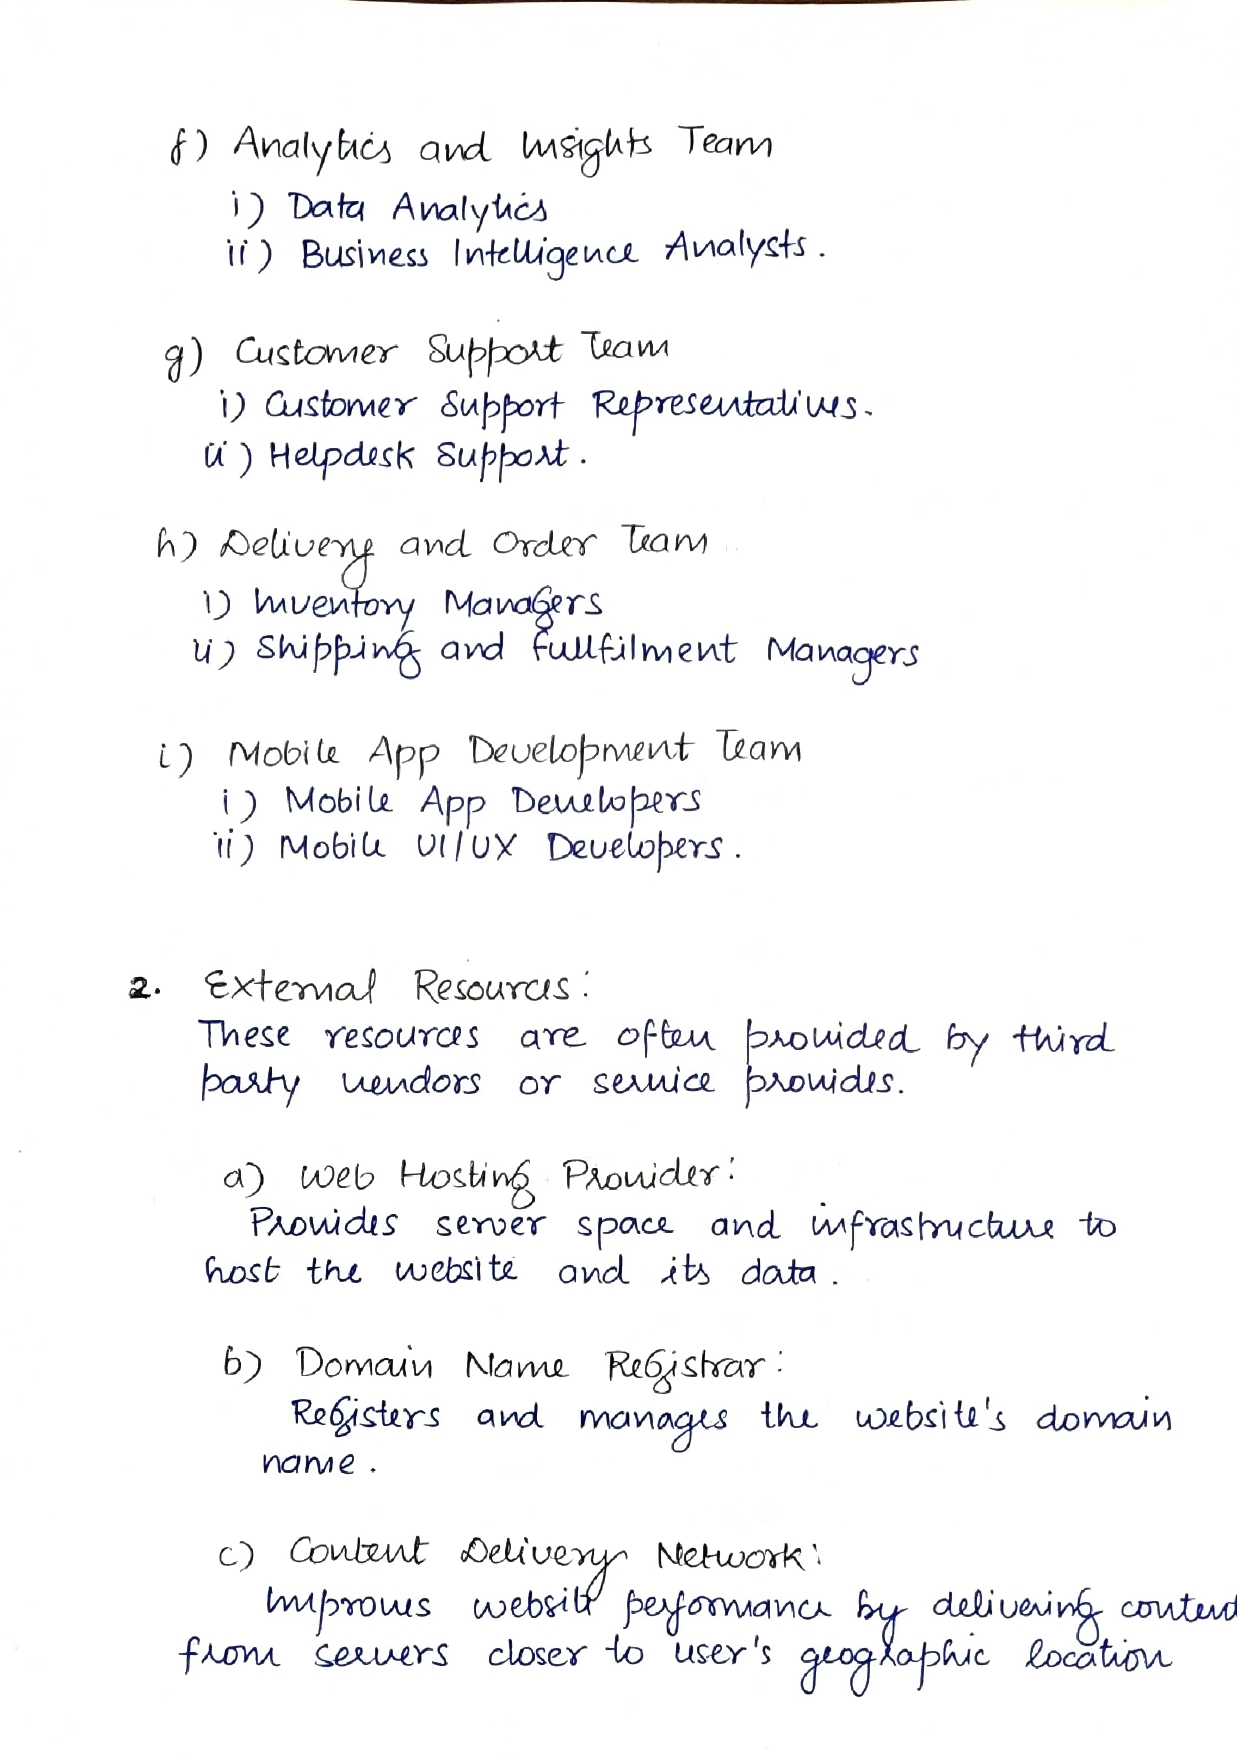 f) Analytics and Insights Team
i) Data Analytics
ii) Business Intelligence Analysts.
g) Customer Support Team
i) Customer Support Representatives.
ii) Helpdesk Support.
h) Delivery and Order Team
i) Inventory Managers
ii) Shipping and Fullfilment Managers
i) Mobile App Development Team
i) Mobile App Developers
ii) Mobile UI/UX Developers.
2. External Resources:
These resources are often provided by third
party vendors or service provides.
a) Web Hosting Provider:
Provides server space and infrastructure to
host the website and its data.
b) Domain Name Registrar:
Registers and manages the website's domain
name.
c) Content Delivery Network:
Improves website performance by delivering content
from servers closer to user's geographic location